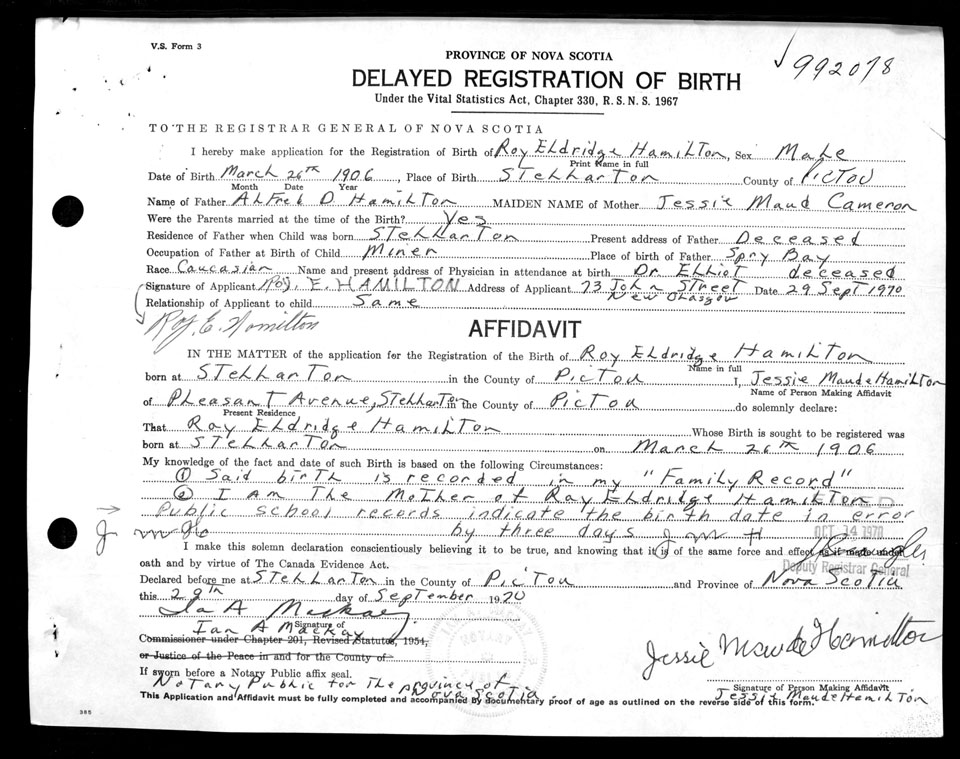 V.S. Form 3
992078
PROVINCE OF NOVA SCOTIA
DELAYED REGISTRATION OF BIRTH
Under the Vital Statistics Act, Chapter 330, R. S. N. S. 1967
TO THE REGISTRAR GENERAL OF NOVA SCOTIA
I hereby make application for the Registration of Birth of Roy Eldridge Hamilton, Sex Male
Print Name in full
Date of Birth March 26th 1906, Place of Birth Stellarton County of Pictou
Month Date Year
Name of Father Alfred D Hamilton MAIDEN NAME of Mother Jessie Maud Cameron
Were the Parents married at the time of the Birth? Yes
Residence of Father when Child was born Stellarton Present address of Father Deceased
Occupation of Father at Birth of Child Miner Place of birth of Father Spry Bay
Race Caucasian Name and present address of Physician in attendance at birth Dr. Elliot deceased
Signature of Applicant Roy. E. HAMILTON Address of Applicant 73 John Street Date 29 Sept 1970
New Glasgow
Relationship of Applicant to child Same
Roy E. Hamilton
AFFIDAVIT
IN THE MATTER of the application for the Registration of the Birth of Roy Eldridge Hamilton
Name in full
born at Stellarton in the County of Pictou I, Jessie Maude Hamilton
Name of Person Making Affidavit
of Pleasant Avenue, Stellarton in the County of Pictou do solemnly declare:
Present Residence
That Roy Eldridge Hamilton Whose Birth is sought to be registered was
born at Stellarton on March 26th 1906
My knowledge of the fact and date of such Birth is based on the following Circumstances:
① Said birth is recorded in my "Family Record"
② I am the Mother of Roy Eldridge Hamilton
Public school records indicate the birth date in error
by three days J M H
OCT 14 1970
I make this solemn declaration conscientiously believing it to be true, and knowing that it is of the same force and effect as if made under
oath and by virtue of The Canada Evidence Act.
Deputy Registrar General
Declared before me at Stellarton in the County of Pictou and Province of Nova Scotia
this 29th day of September 1970
Ian A Mackay
Signature of
Ian A Mackay
Commissioner under Chapter 201, Revised Statutes, 1954,
or Justice of the Peace in and for the County of
Jessie Maude Hamilton
If sworn before a Notary Public affix seal.
Notary Public for the province of
Nova Scotia.
Signature of Person Making Affidavit
Jessie Maude Hamilton
This Application and Affidavit must be fully completed and accompanied by documentary proof of age as outlined on the reverse side of this form.
385